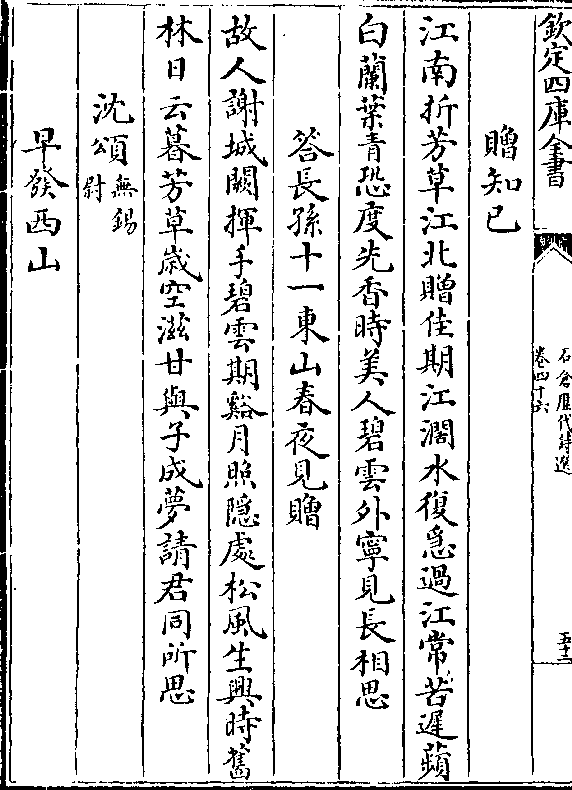 欽定四庫全書
石倉歷代詩選
卷四十六
五十二
贈知已
江南折芳草江北贈佳期江濶水復急過江常苦遲蘋
白蘭葉青恐度先香時美人碧雲外寧見長相思
答長孫十一東山春夜見贈
故人謝城闕揮手碧雲期谿月照隱處松風生興時舊
林日云暮芳草嵗空滋甘與子成夢請君同所思
沈頌無錫
尉
早發西山